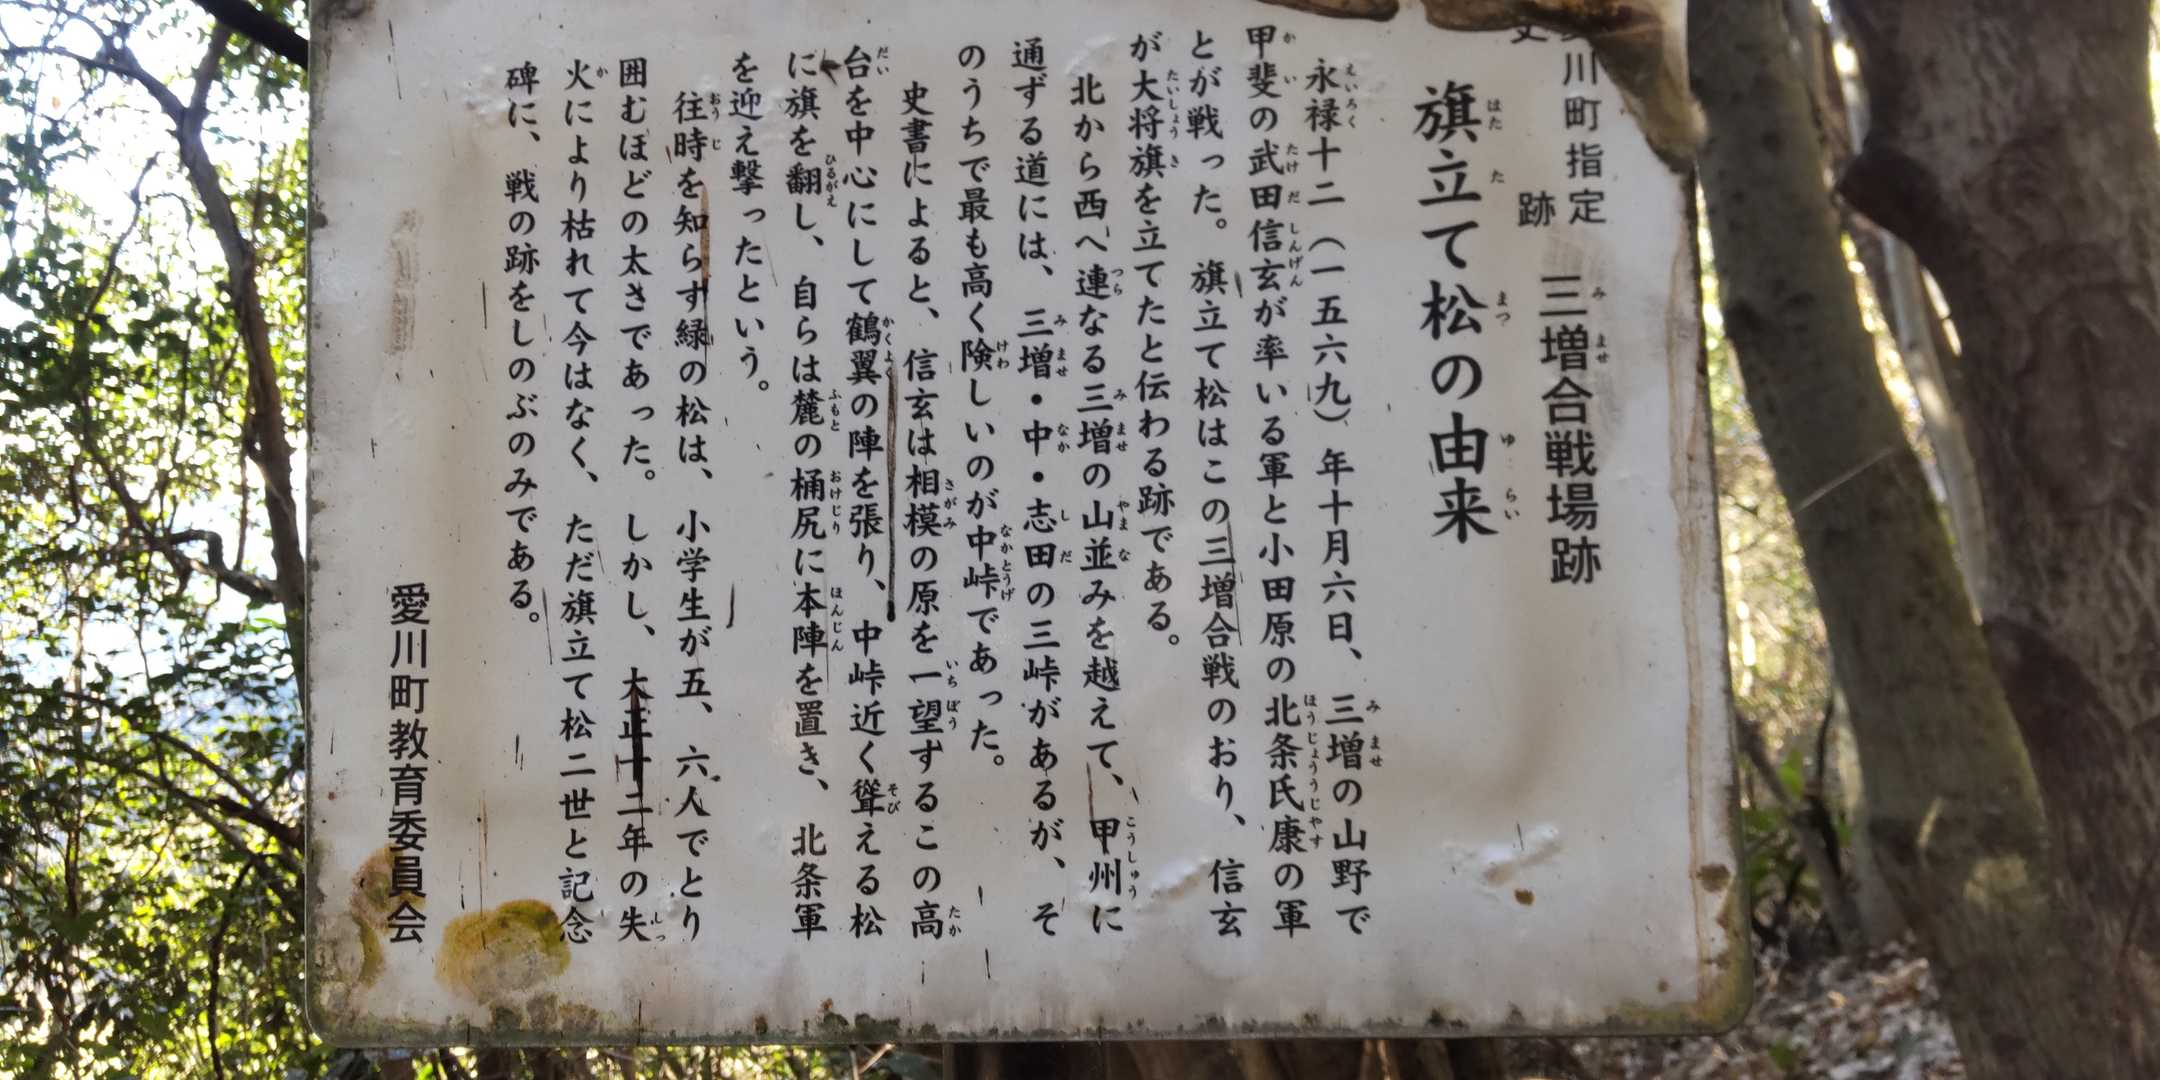 川町指定
跡
三増合戦場跡
旗立て松の由来
永禄十二（一五六九）年十月六日、三増の山野で
甲斐の武田信玄が率いる軍と小田原の北条氏康の軍
とが戦った。旗立て松はこの三増合戦のおり、信玄
が大将旗を立てたと伝わる跡である。
北から西へ連なる三増の山並みを越えて、甲州に
通ずる道には、三増・中・志田の三峠があるが、そ
のうちで最も高く険しいのが中峠であった。
史書によると、信玄は相模の原を一望するこの高
台を中心にして鶴翼の陣を張り、中峠近く聳える松
に旗を翻し、自らは麓の桶尻に本陣を置き、北条軍
を迎え撃ったという。
往時を知らす緑の松は、小学生が五、六人でとり
囲むほどの太さであった。しかし、大正十二年の失
火により枯れて今はなく、ただ旗立て松二世と記念
碑に、戦の跡をしのぶのみである。
愛川町教育委員会